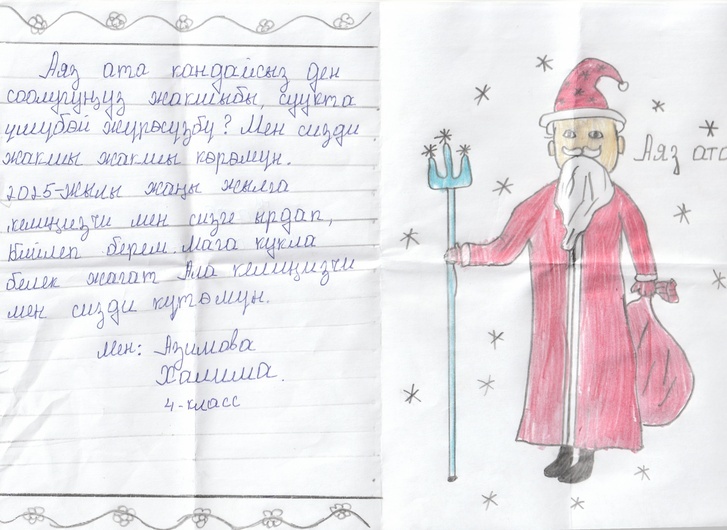 Аяз ата кандайсыз ден
соолугуңуз жакшыбы, суукта
үшүбөй жүрөсүзбү? Мен сизди
жакшы жакшы көрөмүн.
2025-жылы жаңы жылга
келиңизчи мен сизге ырдап,
бийлеп берем. Мага кукла
белек жагат Ала келиңизчи
мен сизди күтөмүн.
Мен: Азимова
Халима.
4-класс
Аяз ата